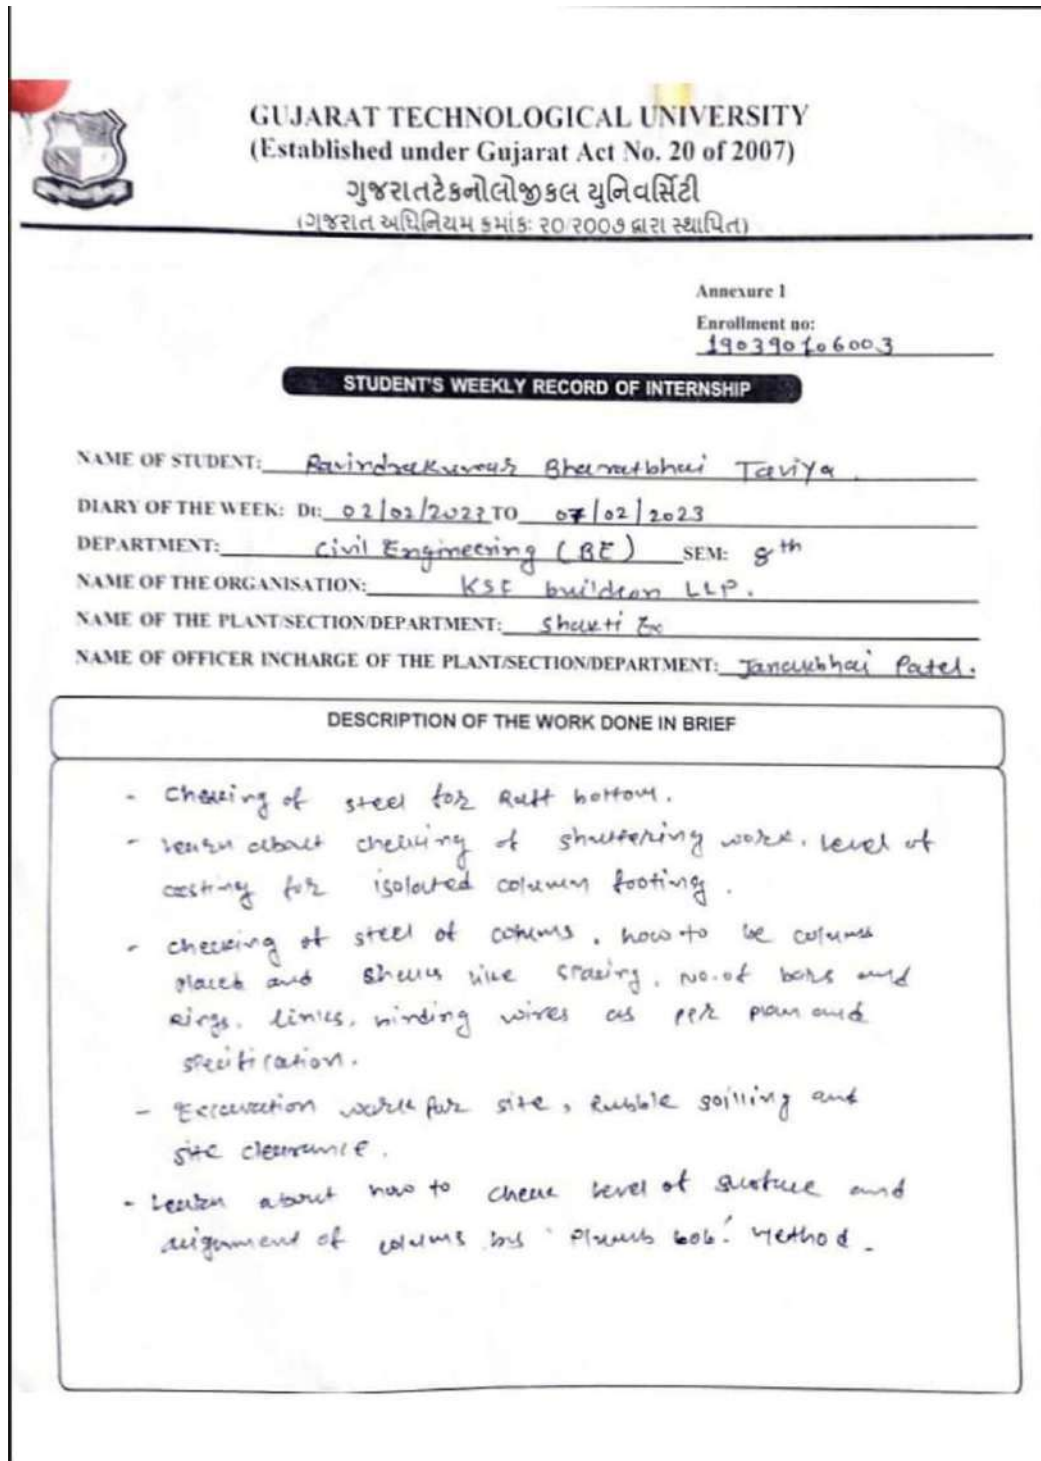 GUJARAT TECHNOLOGICAL UNIVERSITY
(Established under Gujarat Act No. 20 of 2007)
ગુજરાતટેકનોલોજીકલ યુનિવર્સિટી
(ગુજરાત અધિનિયમ ક્રમાંકઃ ૨૦/૨૦૦૭ દ્વારા સ્થાપિત)
Annexure 1
Enrollment no:
190390106003
STUDENT'S WEEKLY RECORD OF INTERNSHIP
NAME OF STUDENT: Ravindrakumar Bharatbhai Taviya
DIARY OF THE WEEK: Dt: 02/02/2023 TO 07/02/2023
DEPARTMENT: Civil Engineering (BE) SEM: 8th
NAME OF THE ORGANISATION: buildcon LLP.
NAME OF THE PLANT/SECTION/DEPARTMENT: Shakti
NAME OF OFFICER INCHARGE OF THE PLANT/SECTION/DEPARTMENT: Janakbhai Patel.
DESCRIPTION OF THE WORK DONE IN BRIEF
- Checking of steel for Raft bottom.
- Learn about checking of shuttering work, level of
casting for isolated column footing.
- checking of steel of colums, how to be colums
placed and like spacing, no. of bars and
Rings, links, binding wires as per plan and
specification.
- Excavation work for site, Rubble soilling and
site clearance.
- Learn about how to check level of surface and
alignment of colums by 'Plumb bob' method.